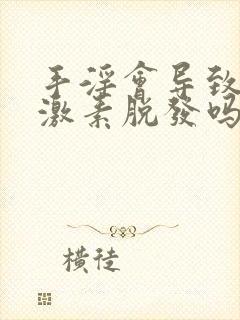 手淫會导致
激素脱發吗
横徒